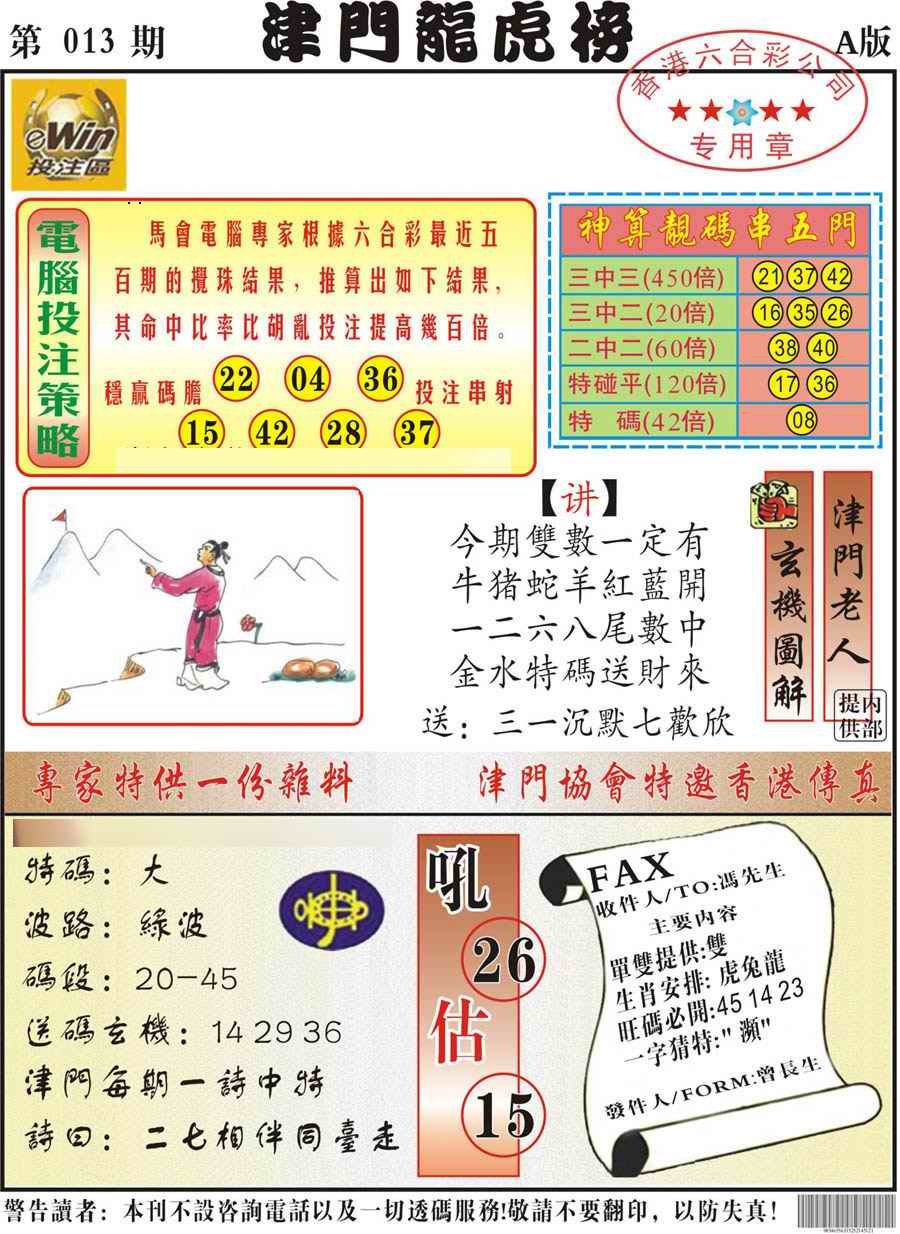 第 013 期
津門龍虎榜
A版
香港六合彩公司
专用章
eWin
投注區
電腦投注策略
馬會電腦專家根據六合彩最近五
百期的攪珠結果，推算出如下結果，
其命中比率比胡亂投注提高幾百倍。
穩贏碼膽 22 04 36 投注串射
15 42 28 37
神算靚碼串五門
三中三(450倍) 21 37 42
三中二(20倍) 16 35 26
二中二(60倍) 38 40
特碰平(120倍) 17 36
特 碼(42倍) 08
【讲】
今期雙數一定有
牛猪蛇羊紅藍開
一二六八尾數中
金水特碼送財來
送：三一沉默七歡欣
玄機圖解
津門老人
内部提供
專家特供一份雜料
津門協會特邀香港傳真
特碼：大
波路：綠波
碼段：20-45
送碼玄機：14 29 36
津門每期一詩中特
詩曰：二七相伴同臺走
吼
26
估
15
FAX
收件人/TO:馮先生
主要内容
單雙提供:雙
生肖安排:虎兔龍
旺碼必開:45 14 23
一字猜特:"瀕"
發件人/FORM:曾長生
警告讀者：本刊不設咨詢電話以及一切透碼服務!敬請不要翻印，以防失真!